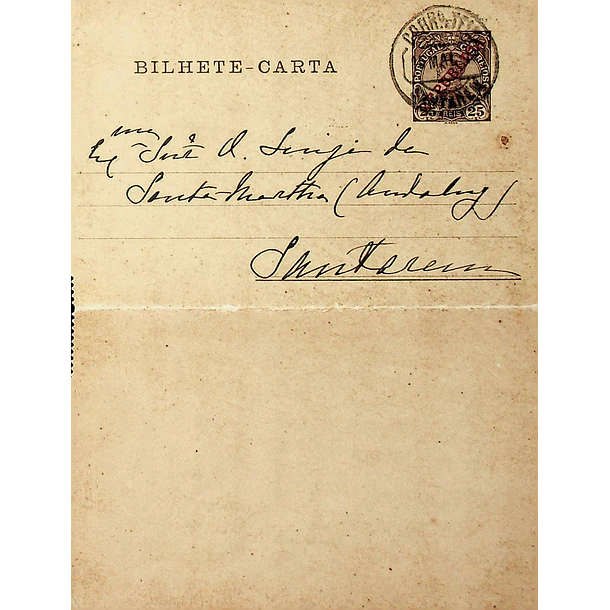 BILHETE-CARTA
PORTUGAL
25 REIS 25
Snr. D. Luiz de
Santa Martha (Andaluz)
Santarem